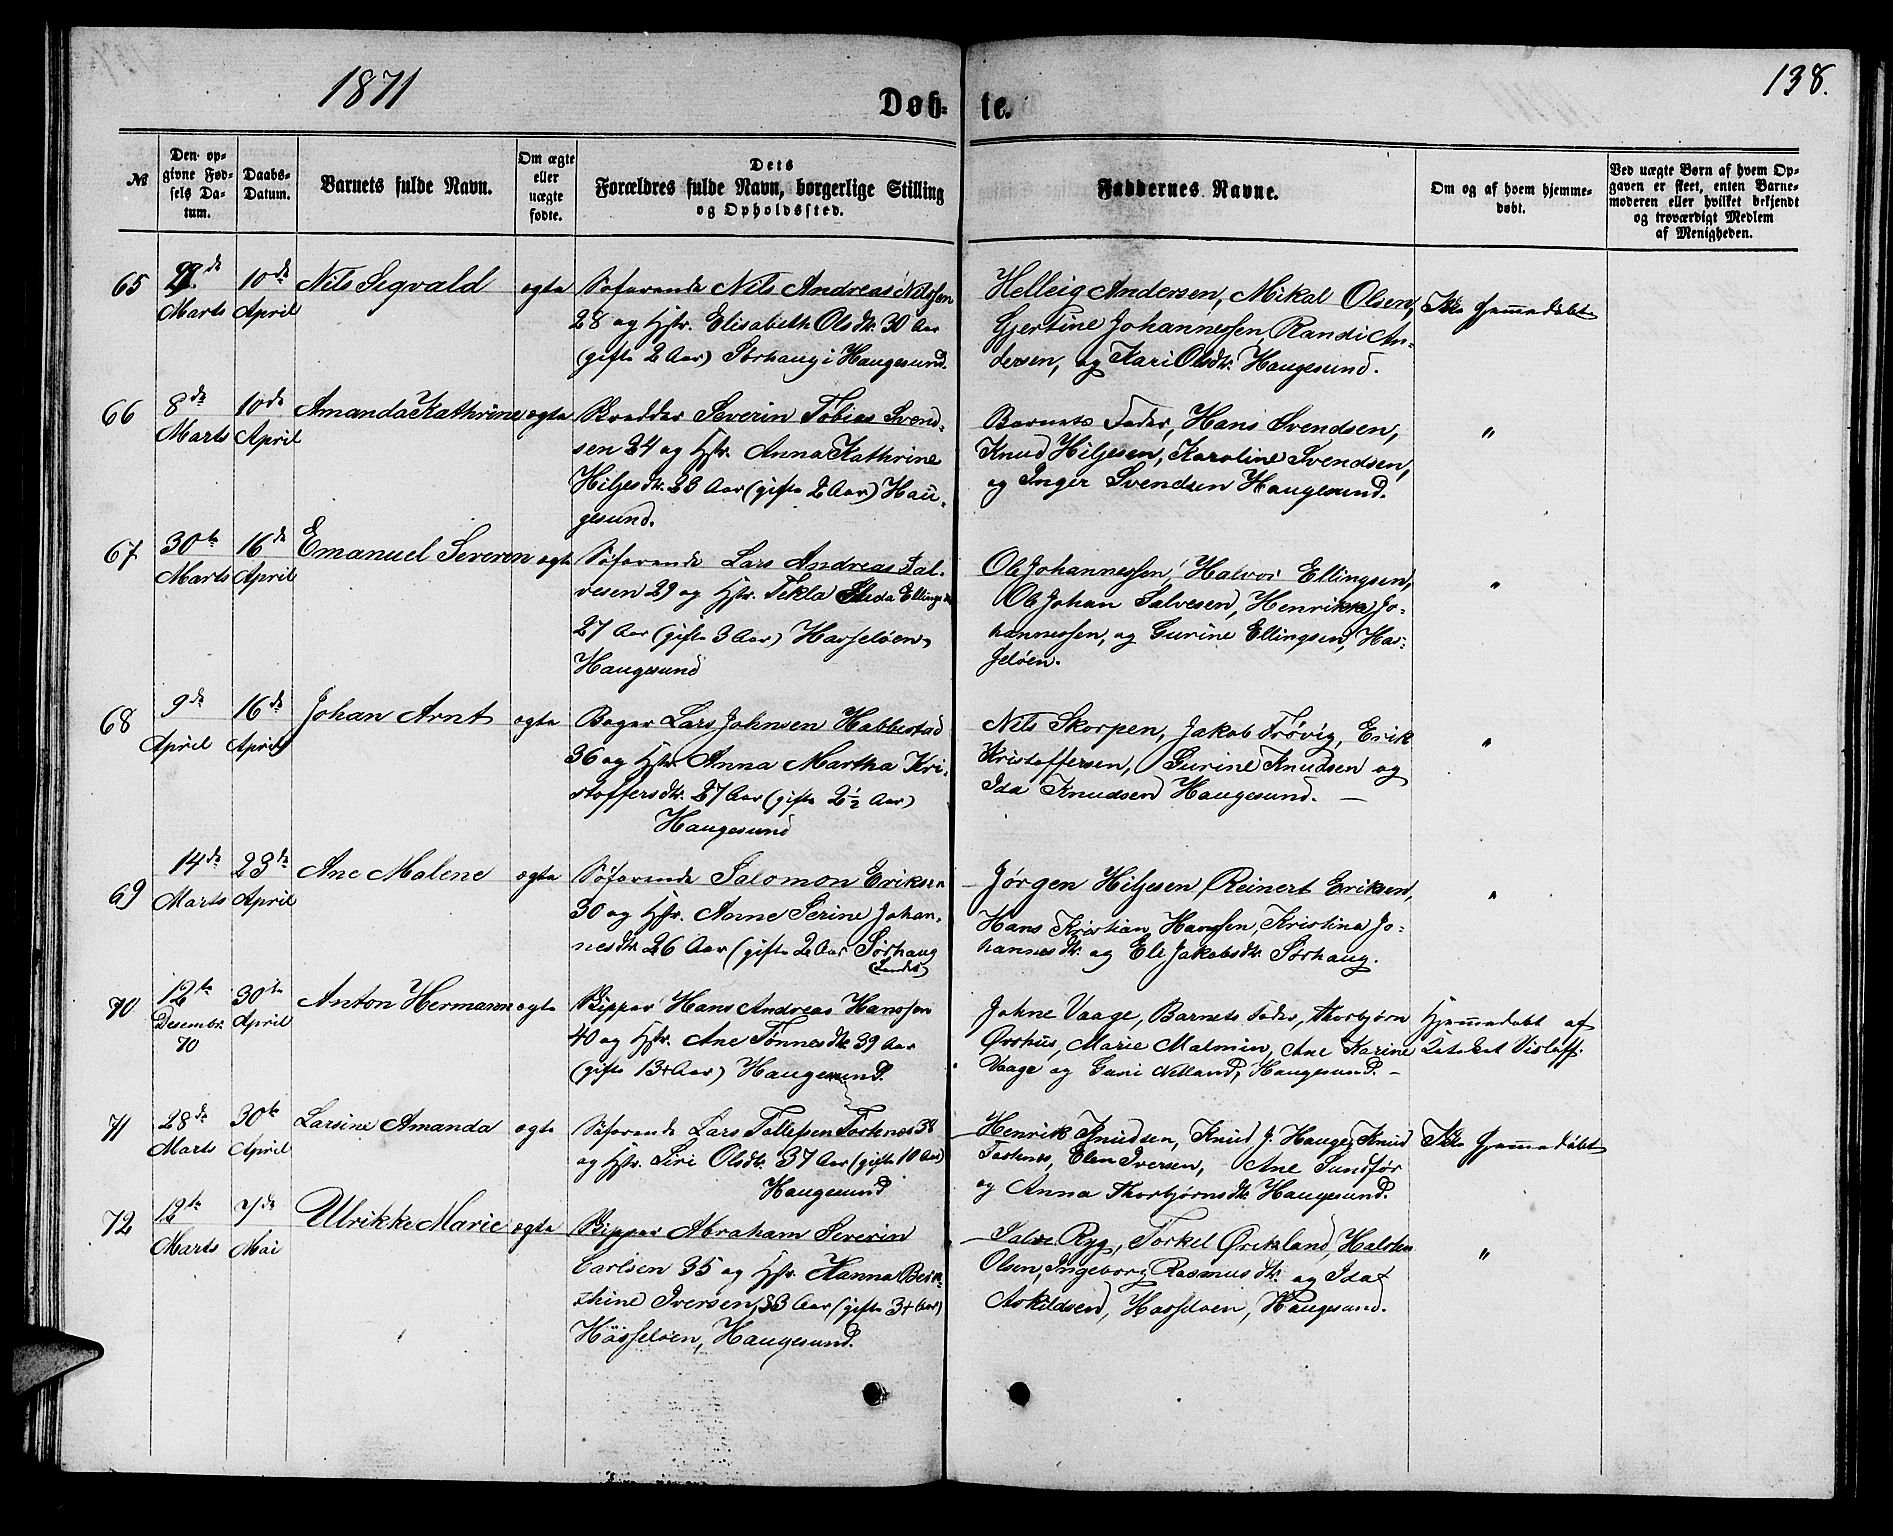 1871
Døb-
te.
138.
№
Den op-
givne Fød-
sels Da-
tum.
Daabs-
Datum.
Barnets fulde Navn.
Om ægte
eller
uægte
fødte.
Dets
Forældres fulde Navn, borgerlige Stilling
og Opholdssted.
Faddernes Navne.
Om og af hvem hjemme-
døbt.
Ved uægte Børn af hvem Op-
gaven er skeet, enten Barne-
moderen eller hvilket bekjendt
og troværdigt Medlem
af Menigheden.
65
Marts
10de
April
Nils Sigvald
ægte
Søfarende Nils Andreas Nilssen
28 og Hstr. Elisabeth Olsdtr. 30 Aar
(gifte 2 Aar) Sørhaug i Haugesund.
Helleig Andersen, Mikal Olsen,
Gjertine Johannessen, Randi An-
dersen, og Kari Olsdtr. Haugesund.
Ikke hjemmedøbt
66
8de
Marts
10de
April
Amanda Kathrine
ægte
Severin Tobias Svend-
sen 24 og Hstr. Anna Kathrine
Hiljesdtr. 23 Aar (gifte 2 Aar) Hau-
gesund.
Barnets Fader, Hans Svendsen,
Knud Hiljesen, Karoline Svendsen,
og Inger Svendsen Haugesund.
"
67
30te
Marts
16de
April
Emanuel Severen
ægte
Søfarende Lars Andreas Sal-
vesen 29 og Hstr. Tekla Ellingsdtr
27 Aar (gifte 3 Aar) Hasseløen,
Haugesund
Ole Johannessen, Halvor Ellingsen,
Ole Johan Salvesen, Henrikke Jo-
hannessen, og Gurine Ellingsen, Has-
seløen.
"
68
9de
April
16de
April
Johan Arnt
ægte
Bager Lars Johnsen Habbestad
36 og Hstr. Anna Martha Kri-
stoffersdtr. 27 Aar (gifte 2½ Aar)
Haugesund
Nils Skorpen, Jakob Frøvig, Erik
Kristoffersen, Gurine Knudsen og
Ida Knudsen Haugesund. —
"
69
14de
Marts
23de
April
Ane Malene
ægte
Søfarende Salomon Eriksen
30 og Hstr. Anne Serine Johan-
nesdtr. 26 Aar (gifte 2 Aar Sørhaug
(Landet)
Jørgen Hiljesen, Reinert Eriksen,
Hans Kristian Hanssen, Kristina Jo-
hannesdtr. og Eli Jakobsdtr. Sørhaug.
"
70
12te
Desembr.
70
30te
April
Anton Hermann
ægte
Skipper Hans Andreas Hanssen
40 og Hstr. Ane Tønnesdtr. 39 Aar
(gifte 13 Aar) Haugesund.
Johne Vaage, Barnets Fader, Thorbjørn
Ørshus, Marie Malmin, Ane Karine
Vaage og Guri Nelland, Haugesund. —
Hjemmedøbt af
71
28de
Marts
30te
April
Larsine Amanda
ægte
Søfarende Lars Tollefsen Tostenes 38
og Hstr. Siri Olsdtr. 37 Aar (gifte 10 Aar)
Haugesund
Henrik Knudsen, Knud J. Hauge, Knud
Tostenes, Elen Iversen, Ane Sundfør
og Anna Thorbjørnsdtr. Haugesund.
Ikke hjemmedøbt
72
12te
Marts
7de
Mai
Ulrikke Marie
ægte
Skipper Abraham Severin
Carlsen 35 og Hstr. Hanna
Iversen, 33 Aar (gifte Aar)
Hasseløen, Haugesund.
Salve Ryg, Torkel Ørekland, Halsten
Olsen, Ingeborg Rasmusdtr. og Ida
Askildsen, Hasseløen, Haugesund.
"